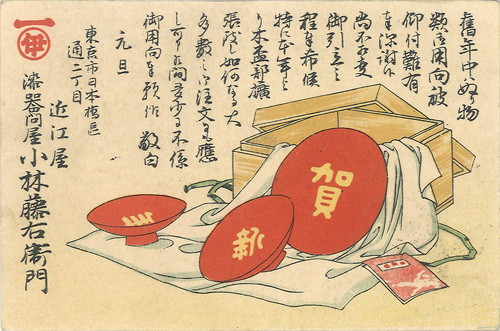 舊年中ハ塗物
類御用向被
仰付難有
奉深謝候
尚不相変
御引立之
程奉希候
特に本年よ
り木盃部擴
張致し如何なる大
多数之御注文にも應
し可申候間多少に不係
御用向奉願候 敬白
元旦
東京市日本橋區
通二丁目
近江屋
漆器問屋 小林藤右衛門
一
伊
賀
新